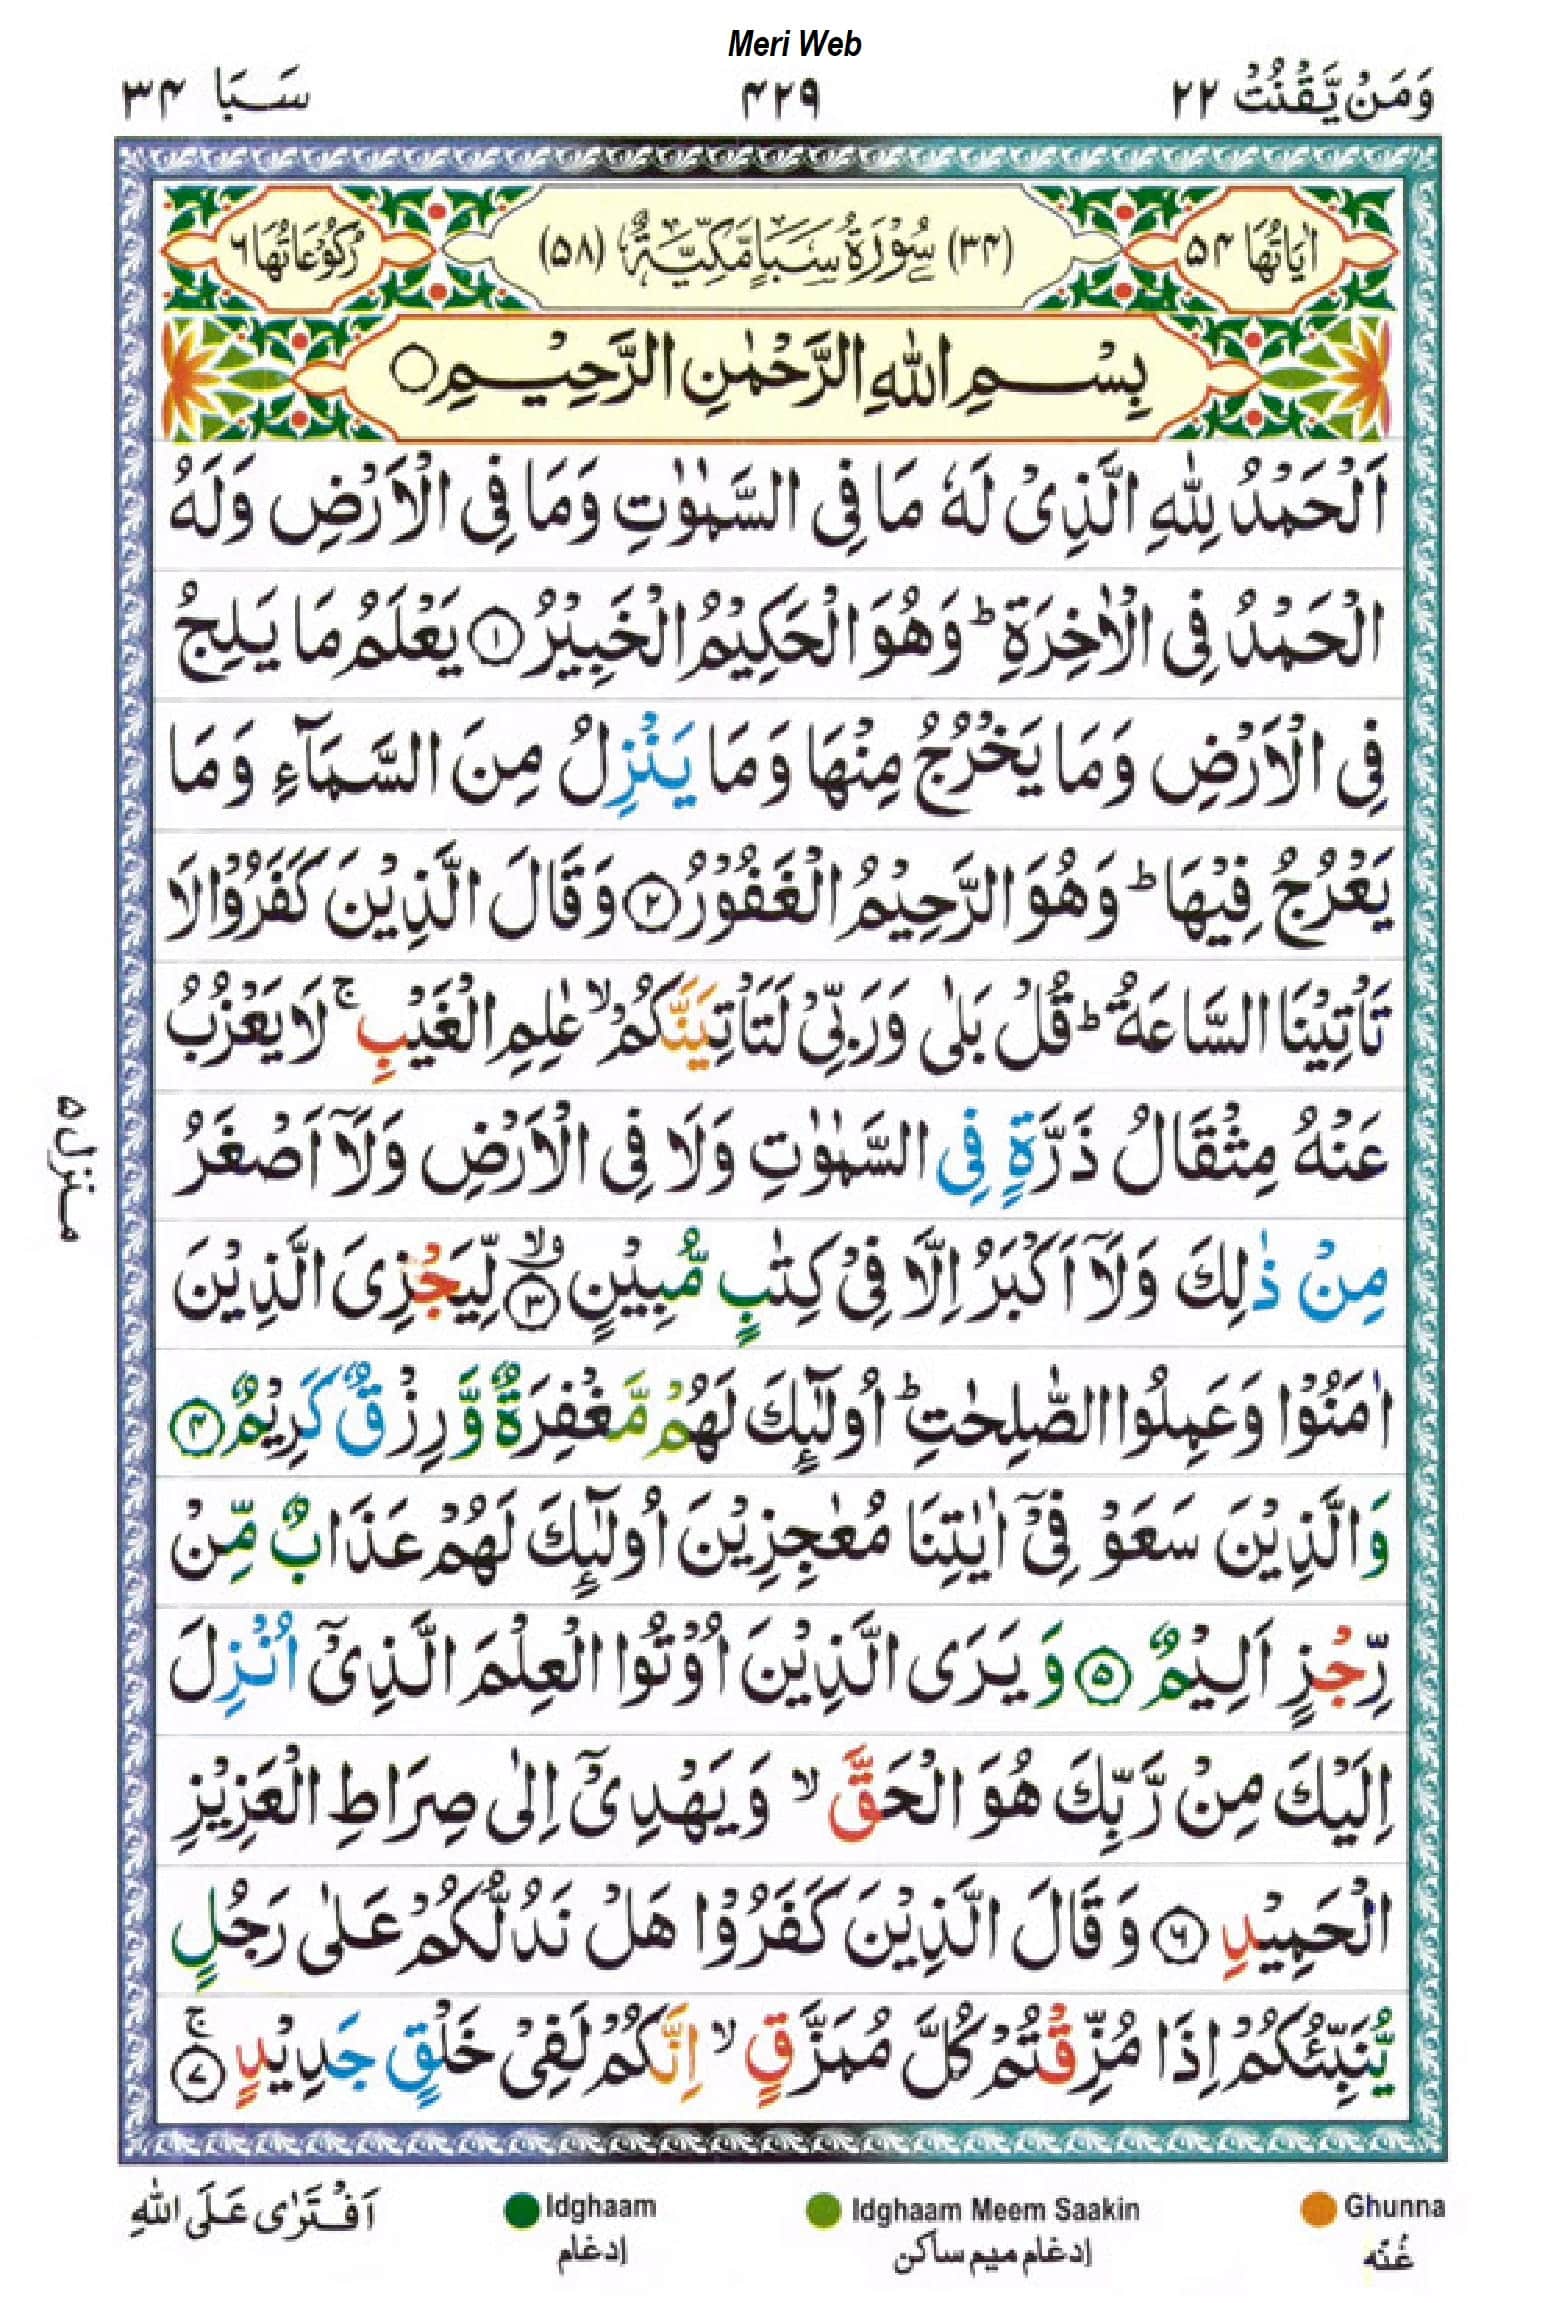 Meri Web
وَمَنْ يَّقْنُتْ ۲۲ ۴۲۹ سَبَا ۳۴
اٰیَاتُهَا ۵۴ (۳۴) سُوْرَةُ سَبَاٍ مَّكِّیَّةٌ (۵۸) رُكُوْعَاتُهَا ۶
بِسْمِ اللهِ الرَّحْمٰنِ الرَّحِیْمِ ○
اَلْحَمْدُ لِلّٰهِ الَّذِیْ لَهٗ مَا فِی السَّمٰوٰتِ وَمَا فِی الْاَرْضِ وَلَهُ
الْحَمْدُ فِی الْاٰخِرَةِ ؕ وَهُوَ الْحَكِیْمُ الْخَبِیْرُ ۱ یَعْلَمُ مَا یَلِجُ
فِی الْاَرْضِ وَمَا یَخْرُجُ مِنْهَا وَمَا یَنْزِلُ مِنَ السَّمَآءِ وَمَا
یَعْرُجُ فِیْهَا ؕ وَهُوَ الرَّحِیْمُ الْغَفُوْرُ ۲ وَقَالَ الَّذِیْنَ كَفَرُوْا لَا
تَاْتِیْنَا السَّاعَةُ ؕ قُلْ بَلٰی وَرَبِّیْ لَتَاْتِیَنَّكُمْ ۙ عٰلِمِ الْغَیْبِ ۚ لَا یَعْزُبُ
عَنْهُ مِثْقَالُ ذَرَّةٍ فِی السَّمٰوٰتِ وَلَا فِی الْاَرْضِ وَلَاۤ اَصْغَرُ
مِنْ ذٰلِكَ وَلَاۤ اَكْبَرُ اِلَّا فِیْ كِتٰبٍ مُّبِیْنٍ ۳ لِّیَجْزِیَ الَّذِیْنَ
اٰمَنُوْا وَعَمِلُوا الصّٰلِحٰتِ ؕ اُولٰٓئِكَ لَهُمْ مَّغْفِرَةٌ وَّرِزْقٌ كَرِیْمٌ ۴
وَالَّذِیْنَ سَعَوْ فِیْۤ اٰیٰتِنَا مُعٰجِزِیْنَ اُولٰٓئِكَ لَهُمْ عَذَابٌ مِّنْ
رِّجْزٍ اَلِیْمٌ ۵ وَیَرَی الَّذِیْنَ اُوْتُوا الْعِلْمَ الَّذِیْۤ اُنْزِلَ
اِلَیْكَ مِنْ رَّبِّكَ هُوَ الْحَقَّ ۙ وَیَهْدِیْۤ اِلٰی صِرَاطِ الْعَزِیْزِ
الْحَمِیْدِ ۶ وَقَالَ الَّذِیْنَ كَفَرُوْا هَلْ نَدُلُّكُمْ عَلٰی رَجُلٍ
یُّنَبِّئُكُمْ اِذَا مُزِّقْتُمْ كُلَّ مُمَزَّقٍ ۙ اِنَّكُمْ لَفِیْ خَلْقٍ جَدِیْدٍ ۷ ۚ
منزل ۵
Ghunna Idghaam Meem Saakin Idghaam اَفْتَرٰی عَلَی اللهِ
غُنّه إدغام ميم ساكن إدغام